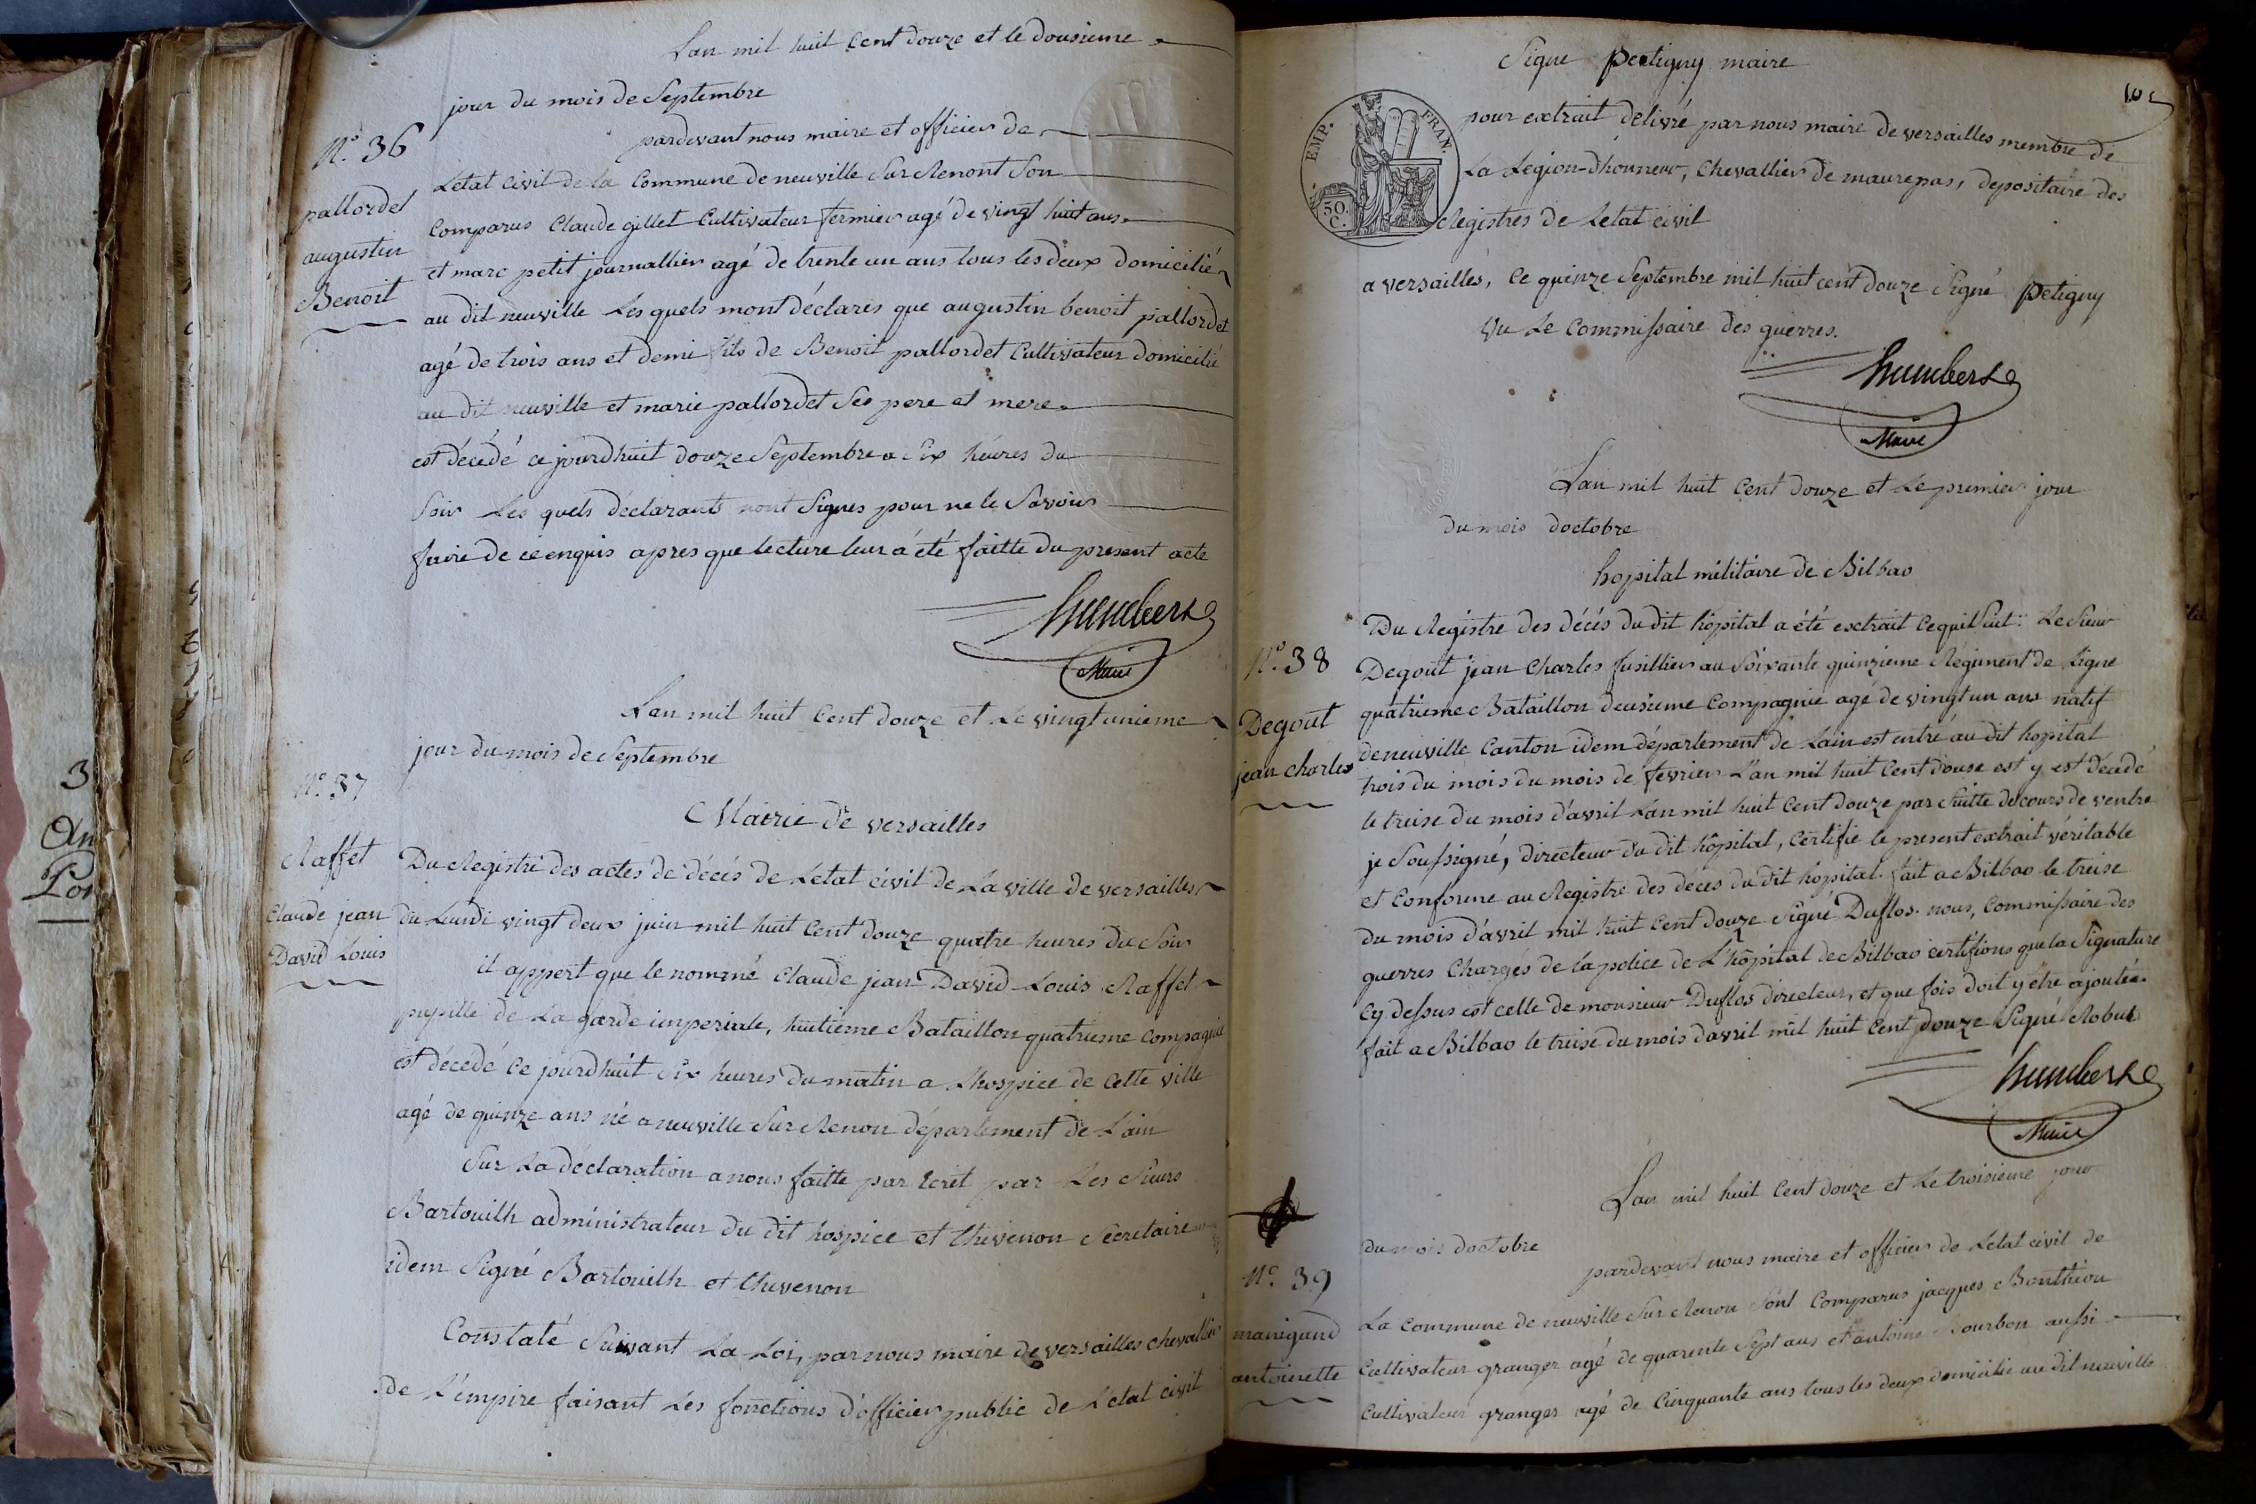 Lan mil huit Cent douze et le dousieme
jour du mois de Septembre
N.º 36
pardevant nous maire et officier de
pallordet
Letat Civil de la Commune de neuville Sur Renont Son
augustin
Comparus Claude gillet Cultivateur fermier agé de vingt huit ans
Benoit
et marc petit journallier agé de trente un ans tous les deux domicilié
au dit neuville Les quels mont déclarés que augustin benoit pallordet
agé de trois ans et demi fils de Benoit pallordet Cultivateur domicilié
au dit neuville et marie pallordet Ses pere et mere
est décédé ce jourdhuit douze Septembre a Six heures du
Soir Les quels déclarants nont Signes pour ne le Savoir
faire de ce enquis apres que lecture leur a été faitte du present acte
humbert
Maire
Lan mil huit Cent douze et Le vingt unieme
jour du mois de Septembre
N.º 37
Mairie de versailles
Raffet
Du Registre des actes de décés de Letat civil de La ville de versailles
Claude jean
du Lundi vingt deux juin mil huit Cent douze quatre heures du Soir
David Louis
il appert que le nommé Claude jean David Louis Raffet
pupille de La garde imperiale, huitieme Bataillon quatrieme Compagnie
est décedé Ce jourdhuit Six heures du matin a Lhospice de Cette ville
agé de quinze ans né a neuville Sur Renon département de L'ain
Sur La déclaration a nous faitte par Ecrit par Les Sieurs
Bartouilh administrateur du dit hospice et Chevenon Secretaire
idem Signé Bartouilh et Chevenon
Constaté Suivant La Loi, par nous maire de versailles chevallier
de L'empire faisant Les fonctions d'officier public de L'etat civil
Signe Petigny maire
EMP. FRAN.
50. C.
pour extrait délivré par nous maire de versailles membre de
La Legion-Dhonneur, Chevallier de maurepas, depositaire des
Registres de Letat civil
a versailles, Ce quinze Septembre mil huit cent douze Signé Petigny
Vu Le Commissaire des guerres.
humbert
Maire
Lan mil huit Cent douze et Le premier jour
du mois doctobre
hopital militaire de Bilbao
Du Registre des décés du dit hôpital a été exctrait Cequil Suit: Le Sieur
N.º 38
Degout jean Charles fusillier au Soixante quinzieme Régiment de Ligne
quatrieme Bataillon deusieme Compagnie agé de vingt un ans natif
Degout
de neuville Canton idem département de Lain est entré au dit hopital
jean Charles
trois du mois du mois de fevrier L'an mil huit Cent douse est y est décédé
le treise du mois d'avril Lan mil huit Cent douze par Suitte de cours de ventre
je Soussigné, directeur du dit hôpital, Certifie le present extrait véritable
et Conforme au Registre des deces du dit hopital. fait a Bilbao le treise
du mois d'avril mil huit Cent douze Signé Duflos. nous, Commissaire des
guerres Chargés de la police de L'hôpital de Bilbao certifions que la Signature
Cy dessus est celle de monsieur Duflos directeur, et que fois doit y être ajoutée.
fait a Bilbao le treise du mois davril mil huit Cent douze Signé
humbert
Maire
Lan mil huit Cent douze et Le troisieme jour
du mois doctobre
pardevant nous maire et officier de Letat civil de
N.º 39
La Commune de neuville Sur Renon Sont Comparus jacques Bonthiou
manigand
Cultivateur granger agé de quarente Sept ans et antoine Bourbon aussi
antoinette
Cultivateur granger agé de Cinquante ans tous les deux domicilie au dit neuville